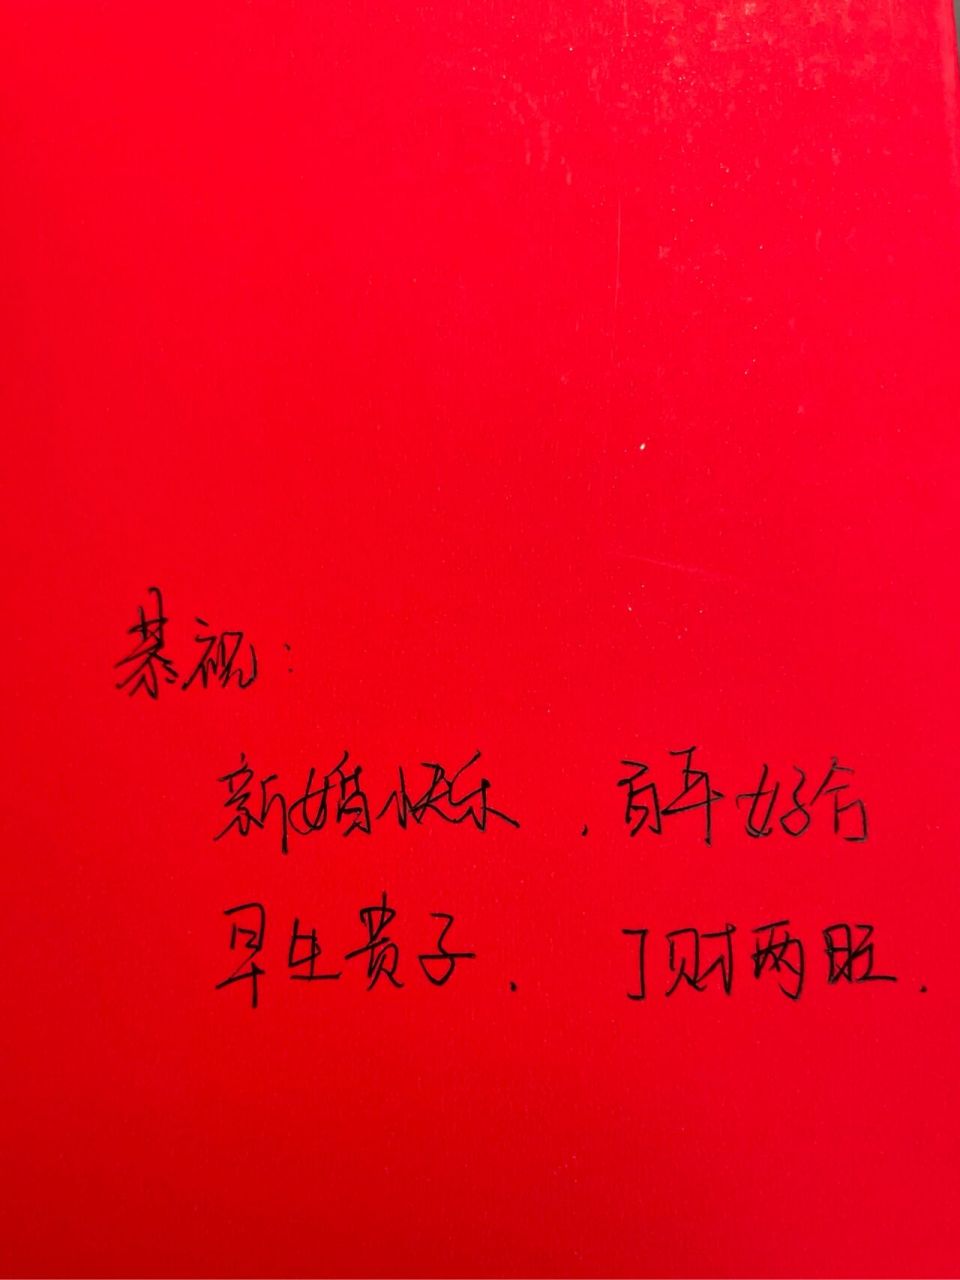 恭祝：
新婚快乐，百年好合
早生贵子，丁财两旺．